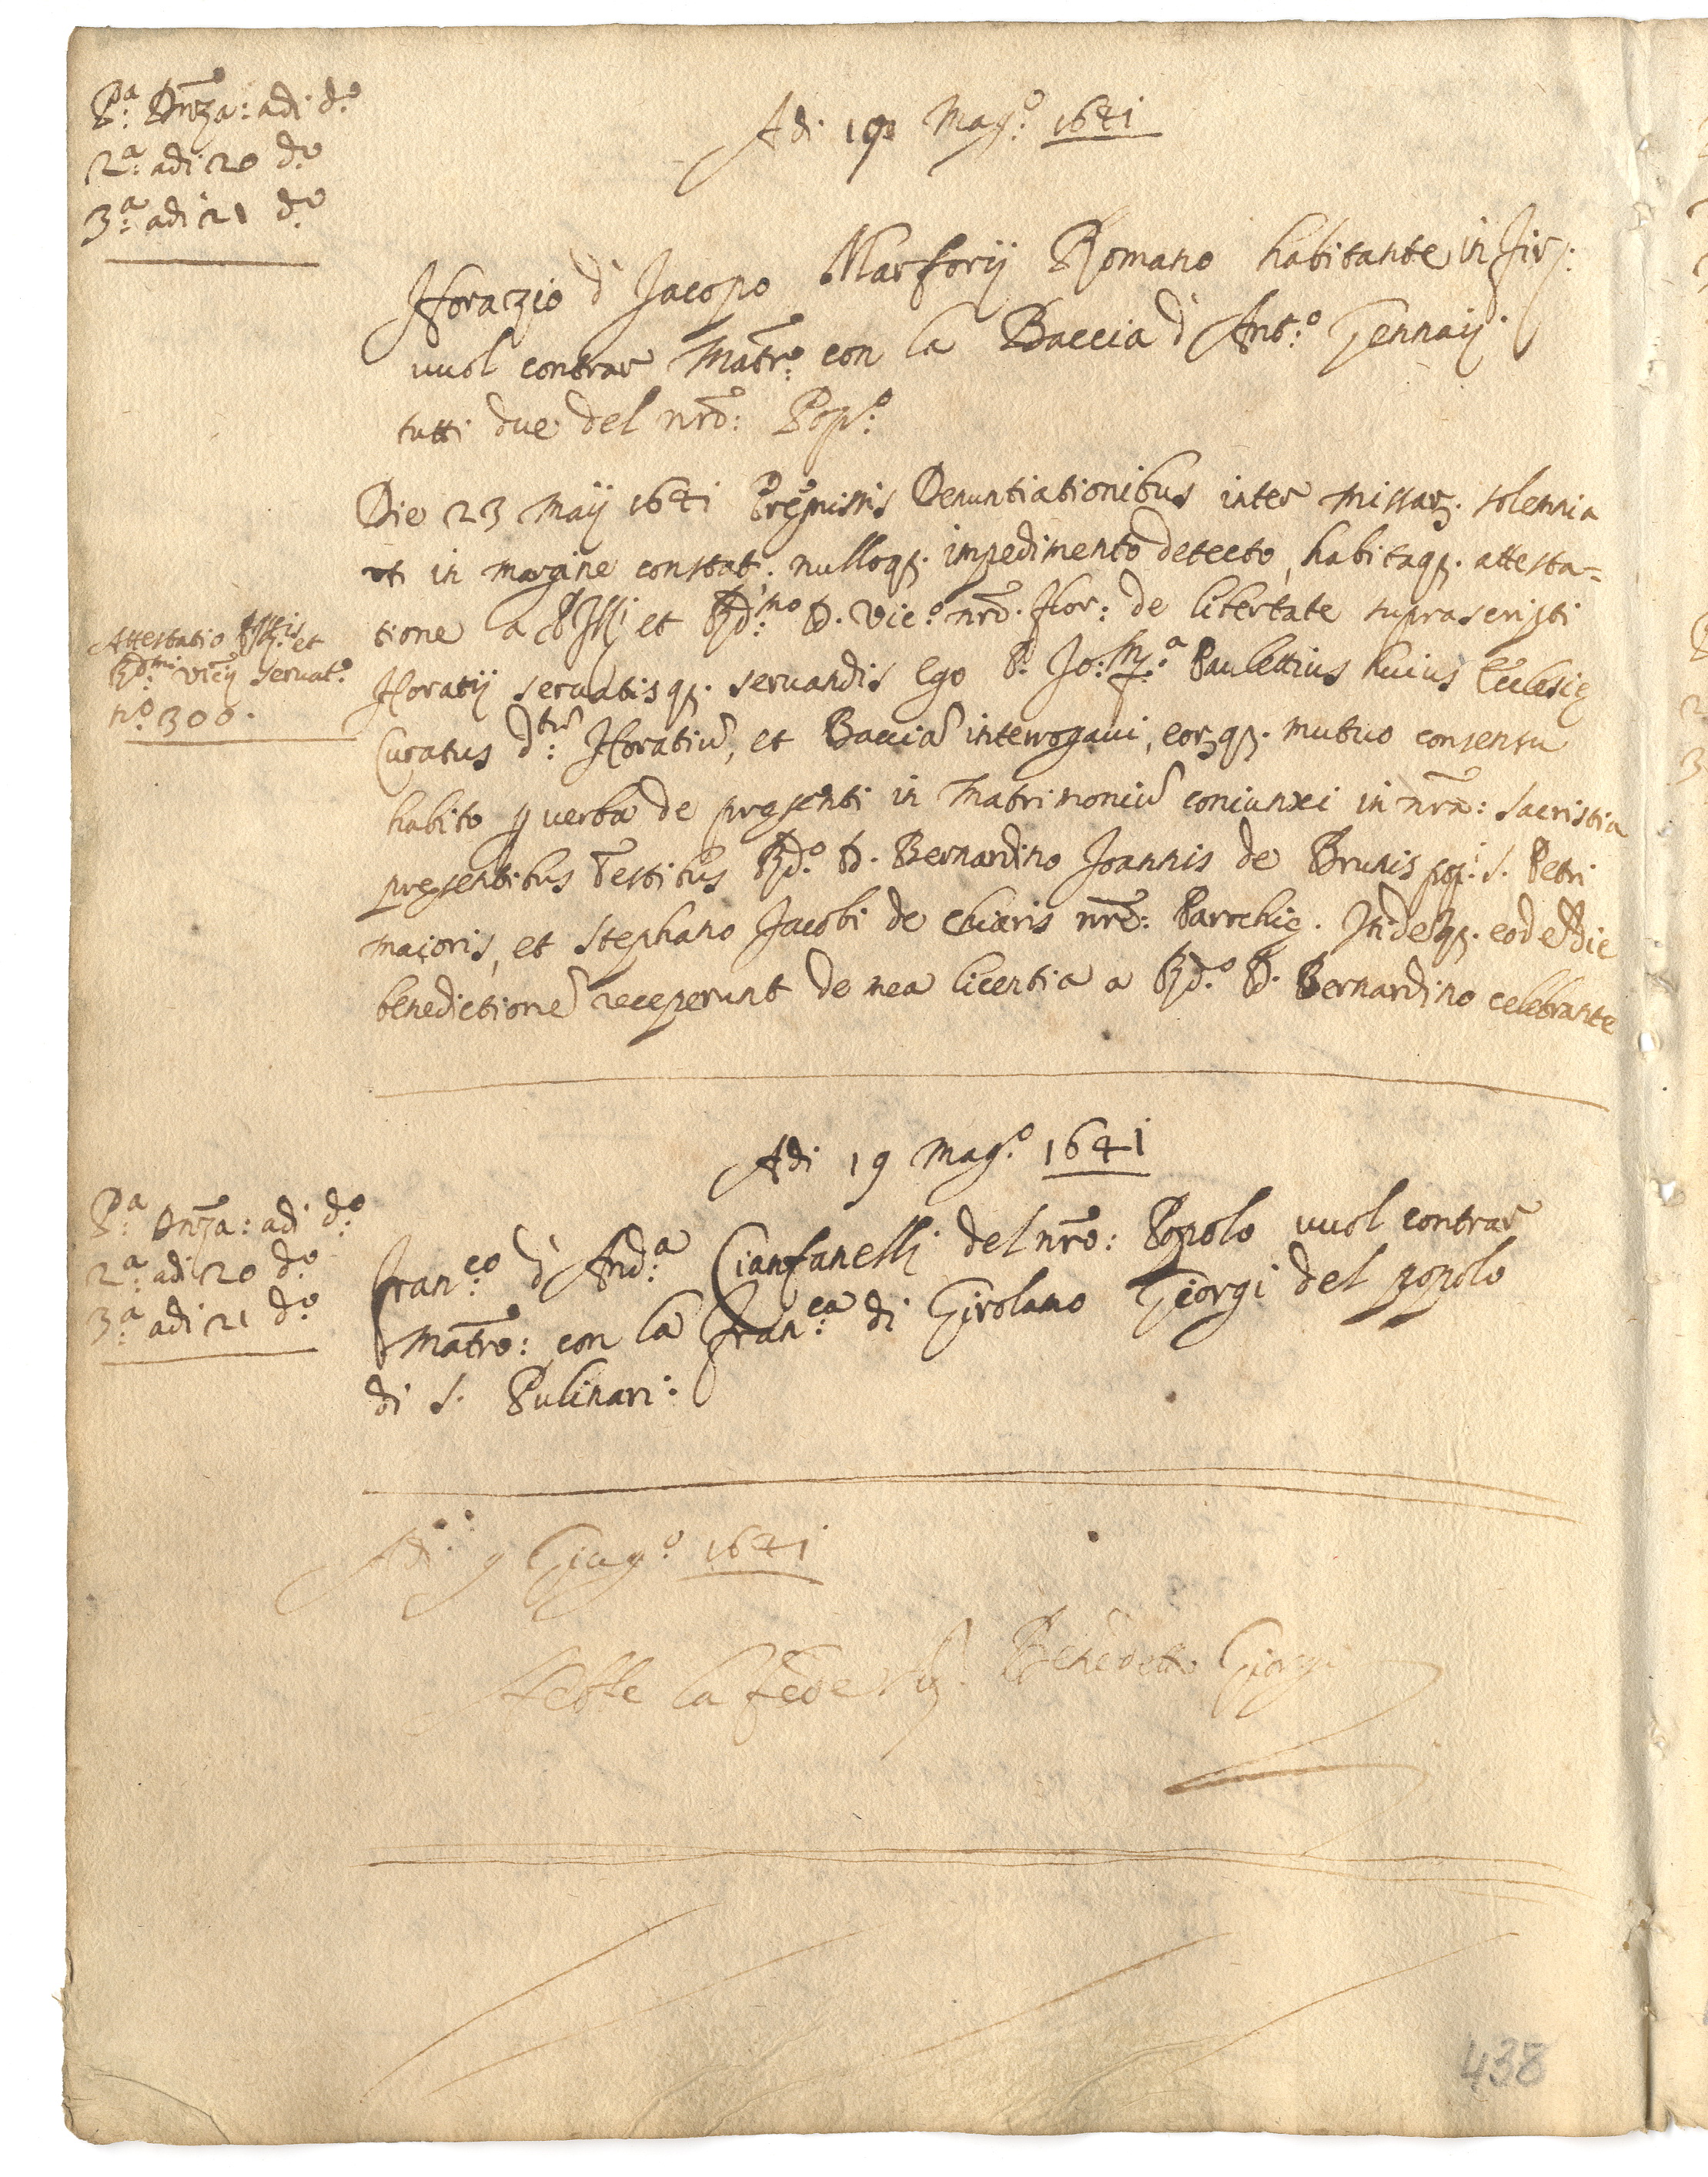 Pª: Dnza: adi d:º
2ª: adi 20 d:º
3ª: adi 21 d:º
Adi 19 Mag:º 1641
Horazio d' Jacopo Marforij Romano habitante in Fir:
vuol contrar Matr:º con la Baccia d' Ant:º Gennaij.
tutti due del nro: Pop:º
Die 23 Maij 1641 Pręmissis Denuntiationibus inter missar. solemnia
ut in margine constat: nulloq. impedimento detecto, habitaq. attesta-
tione a et R.d:mo D. Vic:º nro. Flor: de libertate suprascripti
Attestatio et
R.d:mi Vicij servat:º
nº 300.
Horatij servatisq. servandis Ego P. Jo: Paulettius huius Ecclesię
Curatus d:tũ Horatiũ, et Bacciã interrogavi, eorq. mutuo consensu
habito p verba de pręsenti in Matrimoniũ coniunxi in nra: sacristia
pręsentibus Testibus R.do D. Bernardino Joannis de Brunis pop: S. Petri
maioris, et Stephano Jacobi de Chiaris nrę: Parrchię. eod die
benedictionẽ receperunt de mea licentia a R.do D. Bernardino celebrante
Adi 19 Mag:º 1641
Pª: Dnza: adi d:º
2ª: adi 20 d:º
3ª: adi 21 d:º
Fran:co d' And:ª Cianfanelli del nro: Popolo vuol contrar
Matro: con la Fran:ca di Girolamo Giorgi del popolo
di S. Pulinari:
Adi: 9 Giug:º 1641
Hebbe la fede Benedetto Giorgi
438